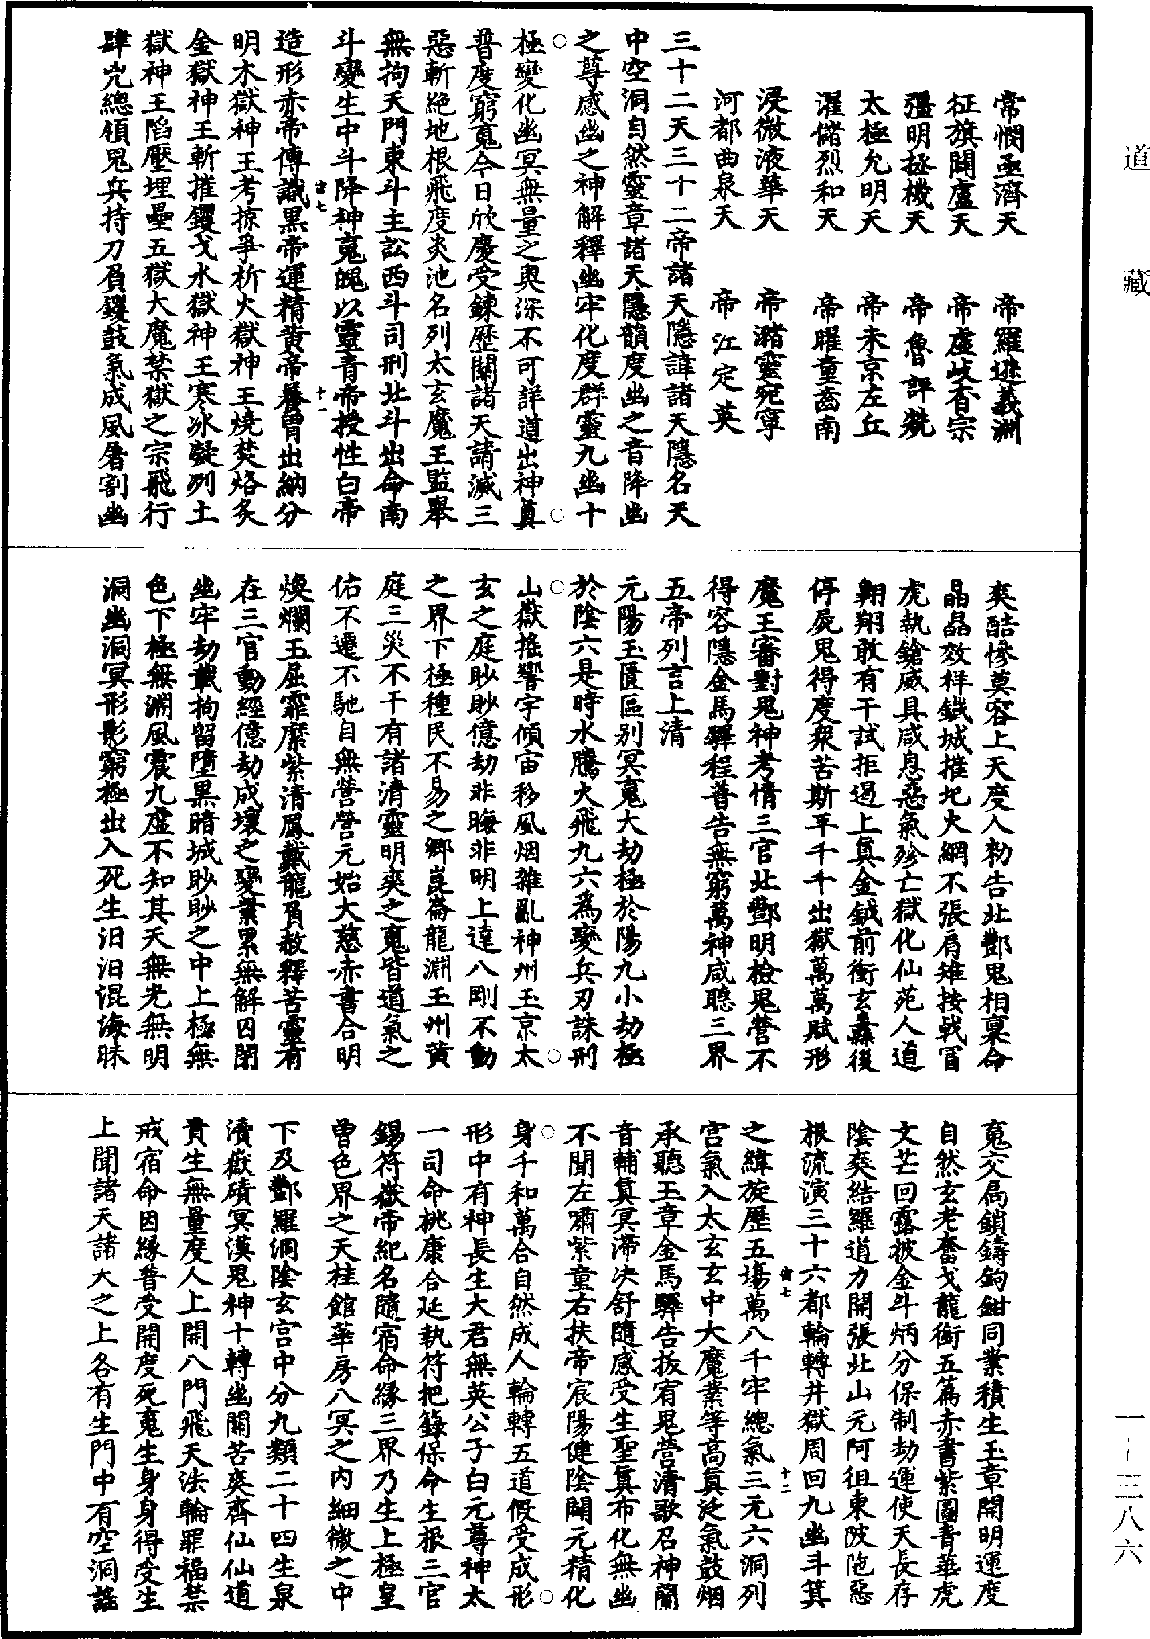 道藏
常憫亟濟天　帝羅迷義淵
征旗閞盧天　帝虛岐香宗
彊明拯機天　帝魯評兟
太極允明天　帝未京左丘
濯儲烈和天　帝曜童齒南
浸微液華天　帝潞靈宛寧
河都曲泉天　帝江定英
三十二天三十二帝諸天隱諱諸天隱名天
中空洞自然靈章諸天隱韻度幽之音降幽
之尊感幽之神解釋幽牢化度群靈九幽十
極變化幽冥無量之奥深不可詳道出神眞
普度窮䰟今日欣慶受錬歷關諸天請滅三
惡斬絶地根飛度炎池名列太玄魔王監舉
無拘天門東斗主訟西斗司刑北斗出命南
斗變生中斗降神䰟魄以靈青帝授性白帝
造形赤帝傳識黑帝運精黄帝養胃出納分
明木獄神王考掠爭析火獄神王燒焚烙炙
金獄神王斬摧钁戈水獄神王寒冰凝冽土
獄神王陷壓埋壘五獄大魔禁獄之宗飛行
肆兇總領鬼兵持刀負钁鼓氣成風屠割幽
宙七
十一
爽酷慘奠容上天度人勑告北酆鬼相稟命
晶晶效祥鐵城摧圮大網不張扃雉按戟冒
虎執鎗威具咸息惡氣殄亡獄化仙苑人道
翱翔敢有干試拒過上眞金鉞前衝玄纛後
停屍鬼得度衆苦斯平千千出獄萬萬賦形
魔王審對鬼神考情三官北酆明檢鬼營不
得容隱金馬驛程普告無窮萬神咸聽三界
五帝列言上清
元陽玉匱區别冥䰟大劫極於陽九小劫極
於陰六是時水騰火飛九六爲變兵刃誅刑
山嶽摇響宇傾宙移風烟雜亂神州玉京太
玄之庭眇眇億劫非晦非明上達八剛不動
之界下極種民不易之鄉崑崙龍淵玉州黄
庭三災不干有諸清靈明爽之䰟皆道氣之
佑不遷不馳自無營營元始大慈赤書合明
煥爛玉屈霏縻紫清鳳戴龍負救釋苦靈有
在三官動經億劫成壞之變業累無解因閉
幽牢劫載拘留墮黒暗城眇眇之中上極無
色下極無淵風震九虛不知其天無光無明
洞幽洞冥形影窮極出入死生汨汨混海昧
䰟交扃鎖鑄鉤鉗同業積生玉章開明運度
自然玄老奮戈龍銜五篇赤書紫圖青華虎
文芒回露披金斗炳分保制劫運使天長存
陰爽結羅道力開張北山元阿徂東陂阤惡
根流演三十六都輪轉井獄周回九幽斗箕
之緯旋歷五塲萬八千牢總氣三元六洞列
宮氣入太玄玄中大魔業等高眞泛氣鼓烟
承聽玉章金馬驛告拔宥鬼營清歌召神蘭
音輔眞冥滯决舒隨感受生聖眞布化無幽
不聞左嘯紫童右扶帝宸陽健陰闢元精化
身千和萬合自然成人輪轉五道假受成形
形中有神長生大君無英公子白元尊神太
一司命桃康合延執符把籙保命生根三官
錫符嶽帝紀名隨宿命緣三界乃生上極皇
曾色界之天桂館華房八冥之内細微之中
下及酆羅洞陰玄宫中分九類二十四生泉
瀆嶽磧冥漢鬼神十轉幽關苦爽齊仙仙道
貴生無量度人上開八門飛天法輪罪福禁
戒宿命因緣普受開度死䰟生身身得受生
上聞諸天諸天之上各有生門中有空洞謡
宙七
十二
一-三八六